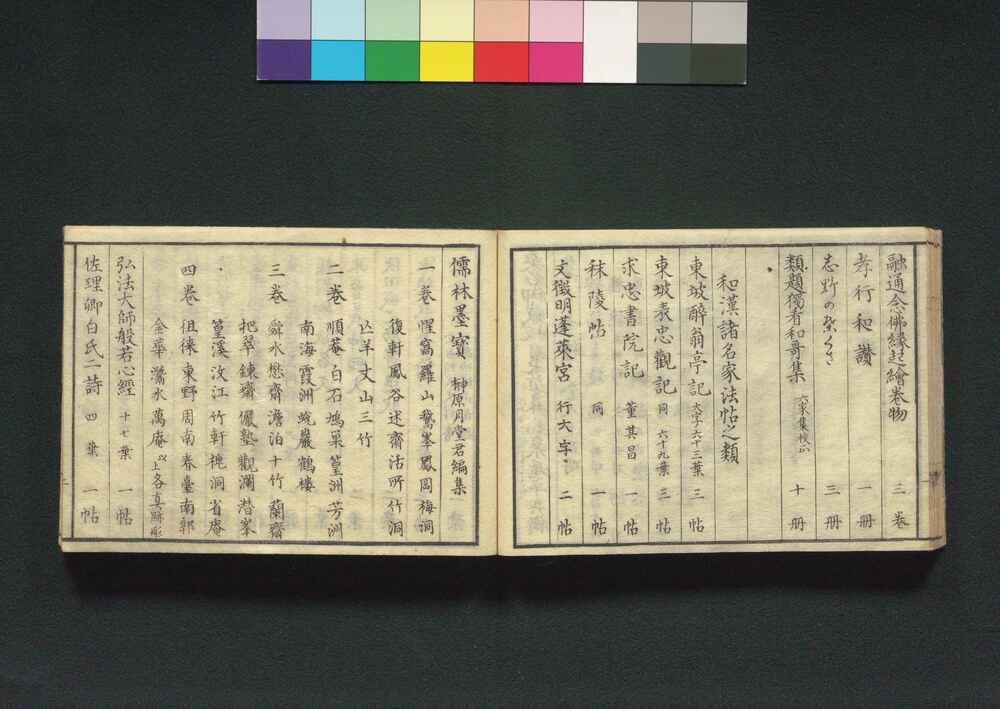 融通念佛縁起繪巻物 三巻
孝行和讃 一冊
志野の葉くさ 三冊
類題獨看和哥集 六家集抜出 十冊
和漢諸名家法帖之類
東坡醉翁亭記 大字六十三葉 三帖
東坡表忠觀記 同 六十九葉 三帖
求忠書院記 董其昌 一帖
秣陵帖 同 一帖
文徴明蓬莱宮 行大字 二帖
儒林墨寳 榊原月堂君編集
一巻 惺窩 羅山 鵞峯 鳳岡 梅洞
復軒 鳳谷 述齋 活所 竹洞
丈山 三竹
二巻 順菴 白石 鳩巣 篁洲 芳洲
南海 霞洲 鶴楼
三巻 舜水 懋齋 澹泊 十竹 蘭齋
把翠 錬齋 儼塾 觀瀾 潜峯
篁溪 汝江 竹軒 桃洞 省庵
四巻 徂徠 東野 周南 春臺 南郭
金華 灊水 萬庵 以上各真跡彫
弘法大師般若心經 十七葉 一帖
佐理卿白氏二詩 四葉 一帖